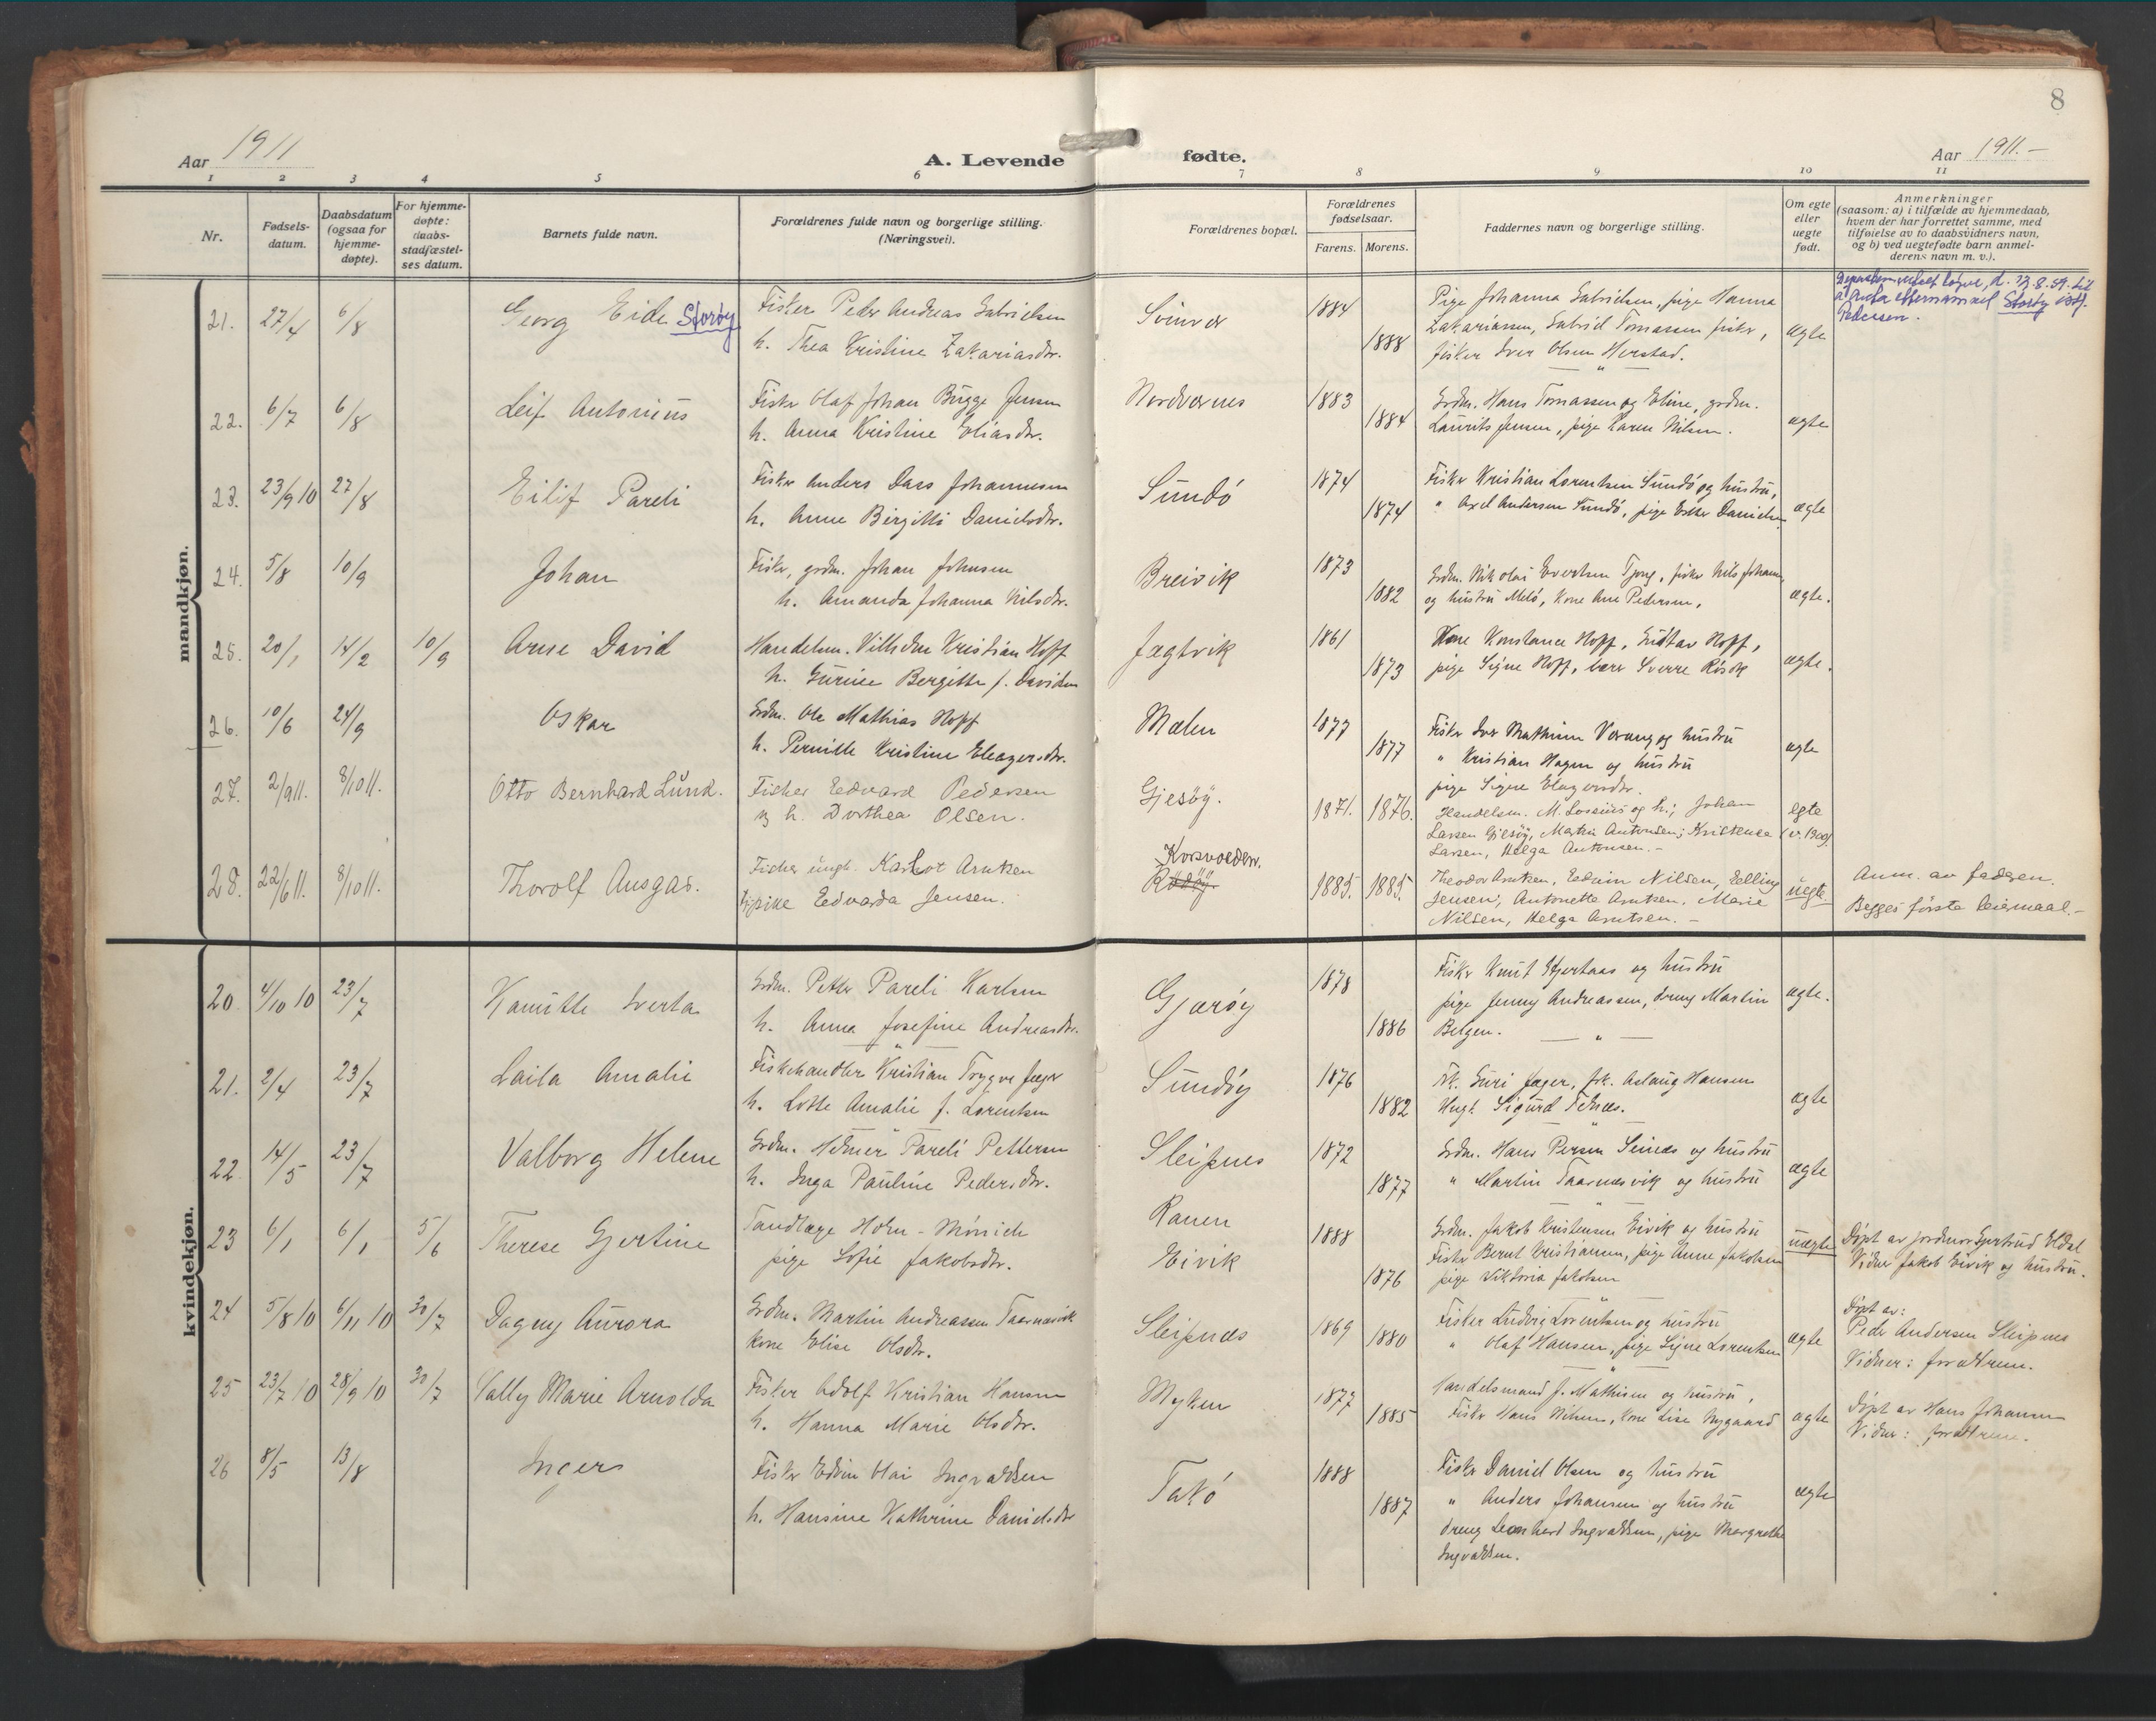 8
Aar 1911
A. Levende fødte.
Aar 1911.-
1 2 3 4 5 6 7 8 9 10 11
Nr.
Fødsels-
datum.
Daabsdatum
(ogsaa for
hjemme-
døpte).
For hjemme-
døpte:
daabs-
stadfæstel-
ses datum.
Barnets fulde navn.
Forældrenes fulde navn og borgerlige stilling.
(Næringsvei).
Forældrenes bopæl.
Forældrenes
fødselsaar.
Farens. Morens.
Faddernes navn og borgerlige stilling.
Om egte
eller
uegte
født.
Anmerkninger
(saasom: a) i tilfælde av hjemmedaab,
hvem der har forrettet samme, med
tilføielse av to daabsvidners navn,
og b) ved uegtefødte barn anmel-
derens navn m. v.).
mandkjøn.
21. 27/4 6/8 Georg Eide Storøy
Fisker Peder Andreas Gabrielsen
h. Thea Kristine Zakariasdtr.
Svinvær 1884 1888
Pige Johanna Gabrielsen, pige Hanna
Zakariassen, Gabriel Tomassen fisker,
fisker Iver Olsen Herstad.
ægte
d. 23.8.59. til
Storøy istf.
Pedersen.
22. 6/7 6/8 Leif Antonius
Fisker Olaf Johan Bugge Jensen
h. Anna Kristine Eliasdtr.
Nordværnes 1883 1884
Grdm. Hans Tomassen og Eline, grdm.
Laurits Jensen, pige Karen Nilsen.
ægte
23. 23/9 10 27/8 Eilif Pareli
Fisker Anders Dass Johannesen
h. Anne Birgitte Danielsdtr.
Sundö 1874 1874
Fisker Kristian Lorentsen Sundö og hustru,
" Axel Andersen Sundö, pige Ester Danielsen
ægte
24. 5/8 10/9 Johan
Fisker, grdm. Johan Johnsen
h. Amanda Johanna Nilsdtr.
Breivik 1873 1882
Grdm. Nikolai Evertsen Tjong, fisker Nils Johansen
og hustru Melö, Kone Ane Pedersen,
ægte.
25. 20/1 14/2 10/9 Arne David
Handelsm. Vilhelm Kristian Hopf
h. Gurine Bergitte f. Davidsen
Jægtvik 1861 1873
Kone Konstance Hopf, Gustav Hopf,
pige Signe Hopf, lærer Sverre Rösok
ægte.
26. 10/6 24/9 Oskar
Grdm. Ole Mathias Hopf
h. Pernille Kristine Eleazersdtr.
Mælen 1877 1877
Fisker Iver Mathisen Værang og hustru
" Kristian Hagen og hustru
pige Signe Eleazersdtr.
ægte
27. 2/9 11. 8/10 11. Otto Bernhard Lund.
Fisker Edvard Pedersen
og h. Dorthea Olsen.
Gjesöy. 1871. 1876.
Handelsm. M. Lorentz og h.; Johan
Larsen Gjesöy, Martin Antonsen; Kristense
Larsen, Helga Antonsen.-
egte
(v. 1900)
28. 22/6 11. 8/10 11. Thorolf Ansgar.
Fisker ungk. Karlot Arntsen
og pike Edvarda Jensen.
Korsvolden.
Rödöy. 1885. 1885.
Theodor Arntsen, Edvin Nilsen, Edling
Jensen, Antonette Arntsen, Marie
Nilsen, Helga Arntsen.-
uegte.
Anm. av faderen.
Begges første leiemaal.-
kvindekjøn.
20. 4/10 10 23/7 Kamitte Iverta
Grdm. Petter Pareli Karlsen
h. Anna Josefine Andreasdtr.
Gjærøy 1878 1886
Fisker Knut Hjertaas og hustru
pige Jenny Andreassen, dreng Martin
Belgen.
ægte.
21. 2/4 23/7 Laila Amalie
Fiskehandler Kristian Trygve Jæger
h. Lotte Amalie f. Lorentsen
Sundøy 1876 1882
Frk. Guri Jæger, frk. Aslaug Hansen
Ungk. Sigurd Telnes.
ægte
22 14/5 23/7 Valborg Helene
Grdm. Hilmer Pareli Pettersen
h. Inga Pauline Pedersdtr.
Sleipnes 1872 1877
Grdm. Hans Persen Seines og hustru
" Martin Taarnesvik og hustru
ægte
23 6/1 6/1 5/6 Therese Gjertine
Tandlæge Holm-Münich
pige Sofie Jakobsdtr.
Ranen
Eivik 1888 1876
Grdm. Jakob Kristensen Eivik og hustru
Fisker Bernt Kristiansen, pige Anne Jakobsen
pige Viktoria Jakobsen
uægte
Døpt av jordmor Gjertrud Eldal
Vidner Jakob Eivik og hustru.
24 5/8 10 6/11 10 30/7 Dagny Aurora
Grdm. Martin Andreassen Taarnesvik
kone Elise Olsdtr.
Sleipnes 1869 1880
Fisker Ludvig Lorentsen og hustru
" Olaf Hansen, pige Signe Lorentsen
ægte
Døpt av:
Peder Andersen Sleipnes
Vidner: forældrene.
25 23/7 10 28/9 10 30/7 Vally Marie Arnolda
Fisker Adolf Kristian Hansen
h. Hanna Marie Olsdtr.
Myken 1877 1885
Handelsmand J. Mathisen og hustru,
Fisker Hans Nilsen, kone Lise Nygaard
ægte
Døpt av Hans Johansen
Vidner: forældrene.
26 8/5 13/8 Ingers
Fisker Edvin Olai Ingvaldsen
h. Hansine Kathrine Danielsdtr
Takö 1888 1887
Fisker Daniel Olsen og hustru
" Anders Johansen og hustru
dreng Leonhard Ingvaldsen, pige Margrethe
Ingvaldsen.
ægte